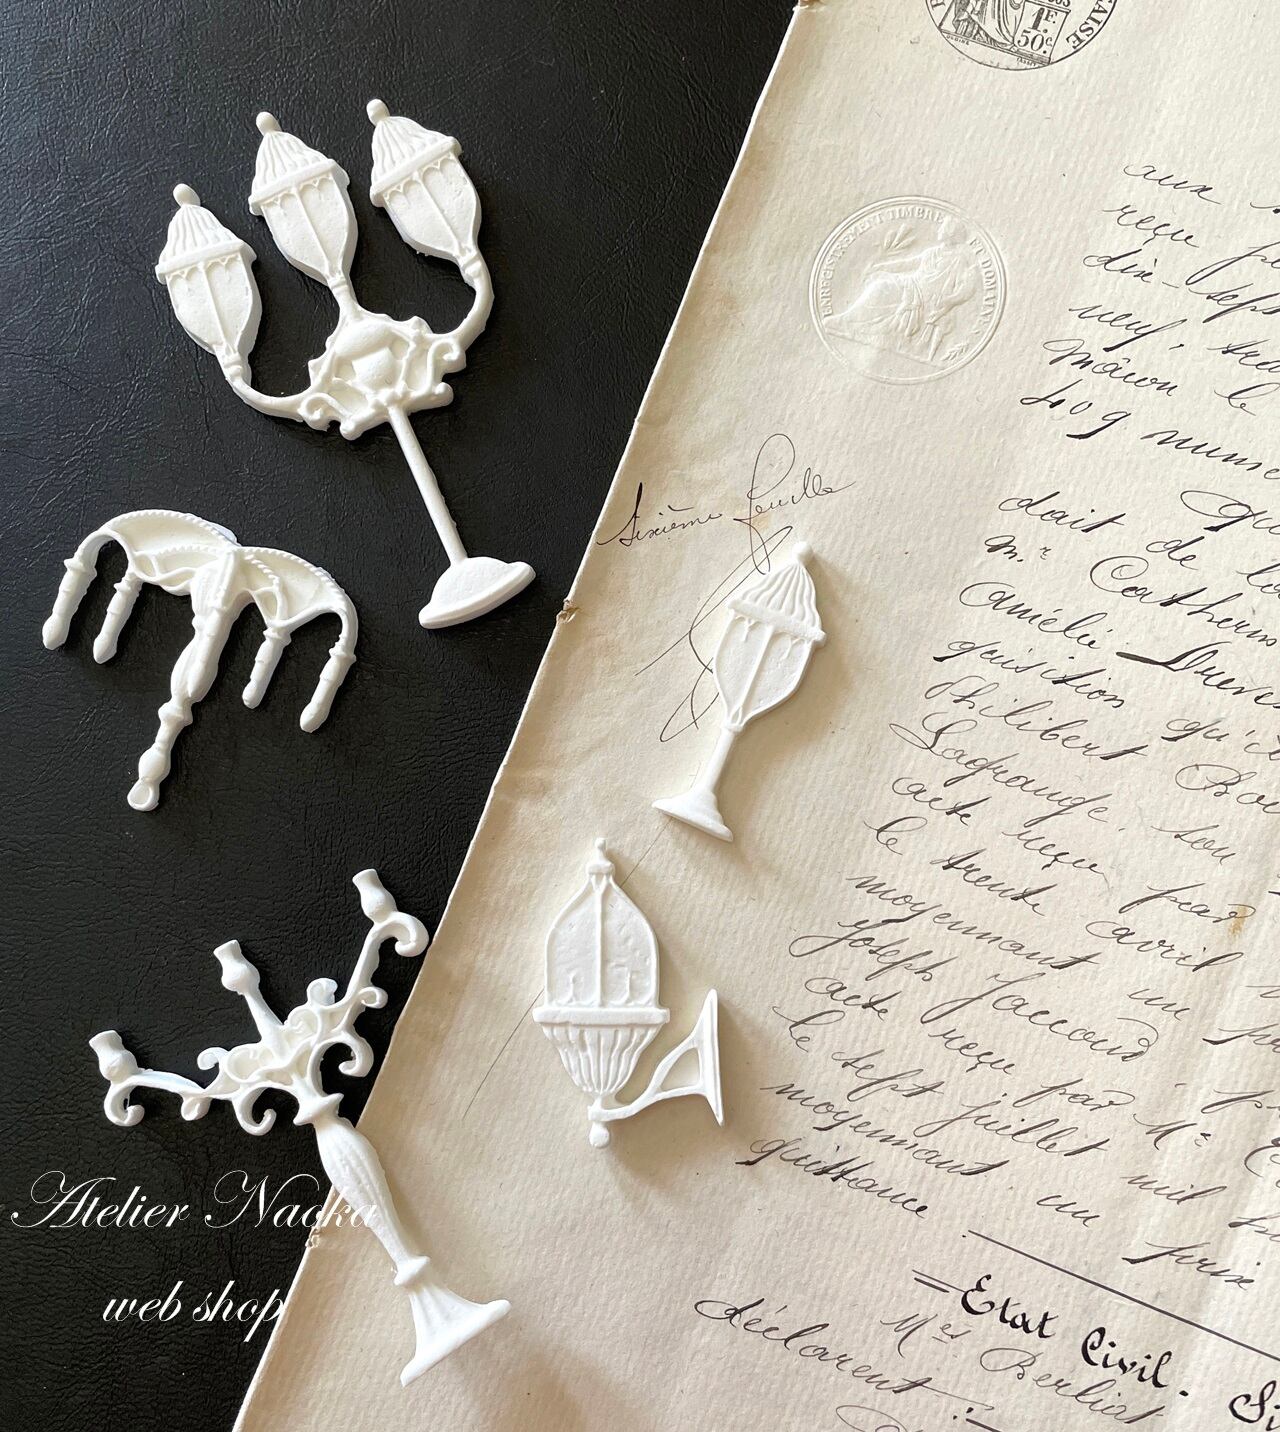 1F
50c.
AISE
ENREGISTREMENT TIMBRE ET DOMAINES
aux
reçu
dix-sept
neuf,
Mâcon le
409
Sixième feuille
dait de
Mr
Amélie
quisition qu'
Philibert
Lagrange, son
acte reçu par
le trente avril
moyennant un
Joseph Jaccoud
acte reçu par Me
le sept juillet mil
moyennant un prix
quittance
Etat Civil.
Mes Berliat
déclarent
Atelier Naoka
web shop